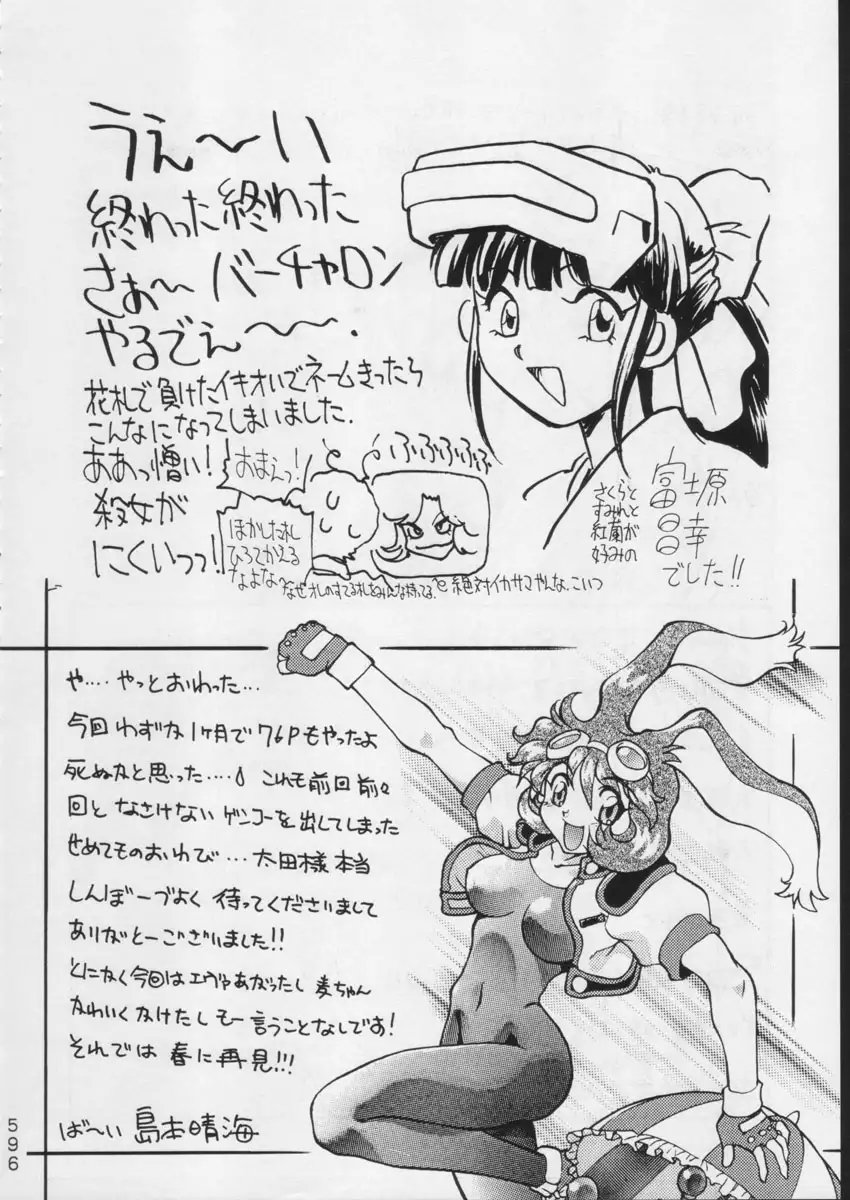 うぇ～い
終わった終わった
さぁ～バーチャロン
やるでぇ～～.
花札で負けたイキオいでネームきったら
こんなになってしまいました.
ああっ憎い!
殺女が
にくいっっ!
おまえっ!
ふふふふふ
ほかした札
ひろてかえる
なよな～
なぜオレのすてる札をみんな持ってる.
絶対イカサマやんな、こいつ
さくらと
すみれと
紅蘭が
好みの
富士原
昌幸
でした!!
や‥‥やっとおわった…
今回わずか1ヶ月で76Pもやったよ
死ぬかと思った‥‥ これも前回前々
回と なさけない ゲンコーを出してしまった
せめてものおわび… 太田様本当
しんぼーづよく 待ってくださいまして
ありがとーございました!!
とにかく今回はエヴァあがったし 麦ちゃん
かわいくかけたし もー言うことなしでお!
それでは 春に再見!!!
ば～い 島本晴海
596